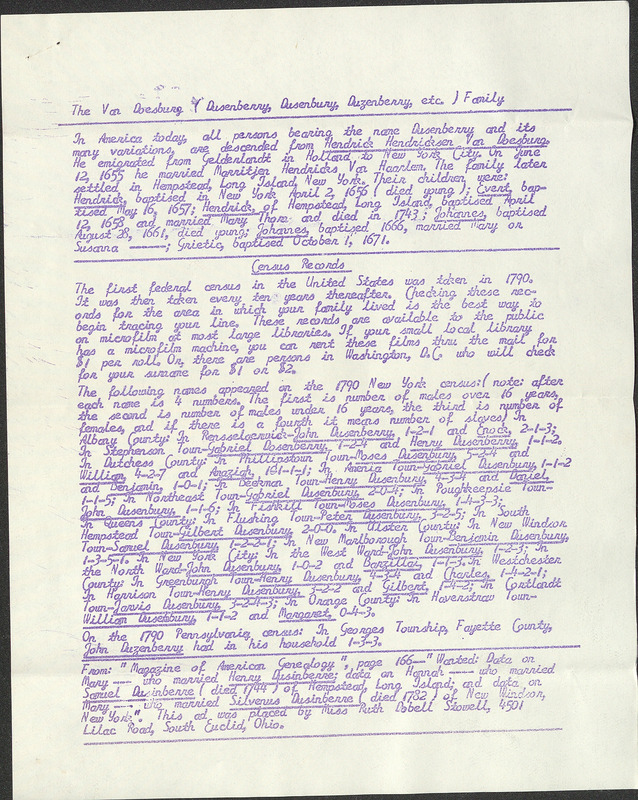 The Van Doesburg ( Dusenberry, Dusenbury, Duzenberry, etc. ) Family
In America today, all persons bearing the name Dusenberry and its
many variations, are descended from Hendrick Hendricksen Van Doesburg.
He emigrated from Geldenlandt in Holland to New York City. On June
12, 1655 he married Marritjen Hendricks Van Haarlem. The family later
settled in Hempstead, Long Island, New York. Their children were:
Hendrick, baptised in New York April 2, 1656 ( died young ); Evert, bap-
tised May 16, 1657; Hendrick, of Hempstead, Long Island, baptised April
12, 1658 and married Mary Thorn and died in 1743; Johannes, baptised
August 28, 1661, died young; Johannes, baptised 1666, married Mary or
Susanna ———; Grietie, baptised October 1, 1671.
Census Records
The first federal census in the United States was taken in 1790.
It was then taken every ten years thereafter. Checking these rec-
ords for the area in which your family lived is the best way to
begin tracing your line. These records are available to the public
on microfilm at most large libraries. If your small local library
has a microfilm machine, you can rent these films thru the mail for
$1 per roll. Or, there are persons in Washington, D.C. who will check
for your surname for $1 or $2.
The following names appeared on the 1790 New York census: ( note: after
each name is 4 numbers. The first is number of males over 16 years,
the second is number of males under 16 years, the third is number of
females, and if there is a fourth it means number of slaves) In
Albany County: In Rensselaerwick-John Dusenberry, 1-2-1 and Enock, 2-1-3;
In Stephenson Town-Gabriel Dosenberry, 1-2-4 and Henry Dusenberry, 1-1-2.
In Dutchess County: In Phillipstown Town-Moses Dusenbury, 3-2-4 and
William, 4-2-7 and Amaziah, 1-1-1-1; In Amenia Town-Gabriel Dusenbury, 1-1-2
and Benjamin, 1-0-1; In Beekman Town-Henry Dusenbury, 4-3-4 and Daniel,
1-1-5; In Northeast Town-Gabriel Dusenbury, 2-0-4; In Poughkeepsie Town-
John Dusenbury, 1-1-6; In Fishkill Town-Moses Dusenbury, 1-4-3-3;
In Queens County: In Flushing Town-Peter Dusenbury, 3-2-5; In South
Hempstead Town-Gilbert Dusenbury, 2-0-0. In Ulster County: In New Windsor
Town-Samuel Dusenbury, 1-2-2-1; In New Marlborough Town-Benjamin Dusenbury,
1-3-5-1. In New York City: In the West Ward-John Dusenbury, 1-2-3; In
the North Ward-John Dusenbury, 1-0-2 and Barzillai, 1-1-3. In Westchester
County: In Greenburgh Town-Henry Dusenbury, 4-3-4 and Charles, 1-4-2-1;
In Harrison Town-Henry Dusenbury, 3-2-2 and Gilbert, 1-4-2; In Cortlandt
Town-Jarvis Dusenbury, 3-2-4-3; In Orange County: In Haverstraw Town-
William Dusenbury, 1-1-2 and Margaret, 0-4-3.
On the 1790 Pennsylvania census: In Georges Township, Fayette County,
John Duzenberry had in his household 1-3-3.
From: " Magazine of American Genealogy ", page 166—" Wanted: Data on
Mary —— who married Henry Dusinberre; data on Hannah —— who married
Samuel Dusinberre ( died 1744 ) of Hempstead, Long Island; and data on
Mary —— who married Silvenus Dusinberre ( died 1782 ) of New Windsor,
New York." This ad was placed by Miss Ruth Dobell Stowell, 4501
Lilac Road, South Euclid, Ohio.